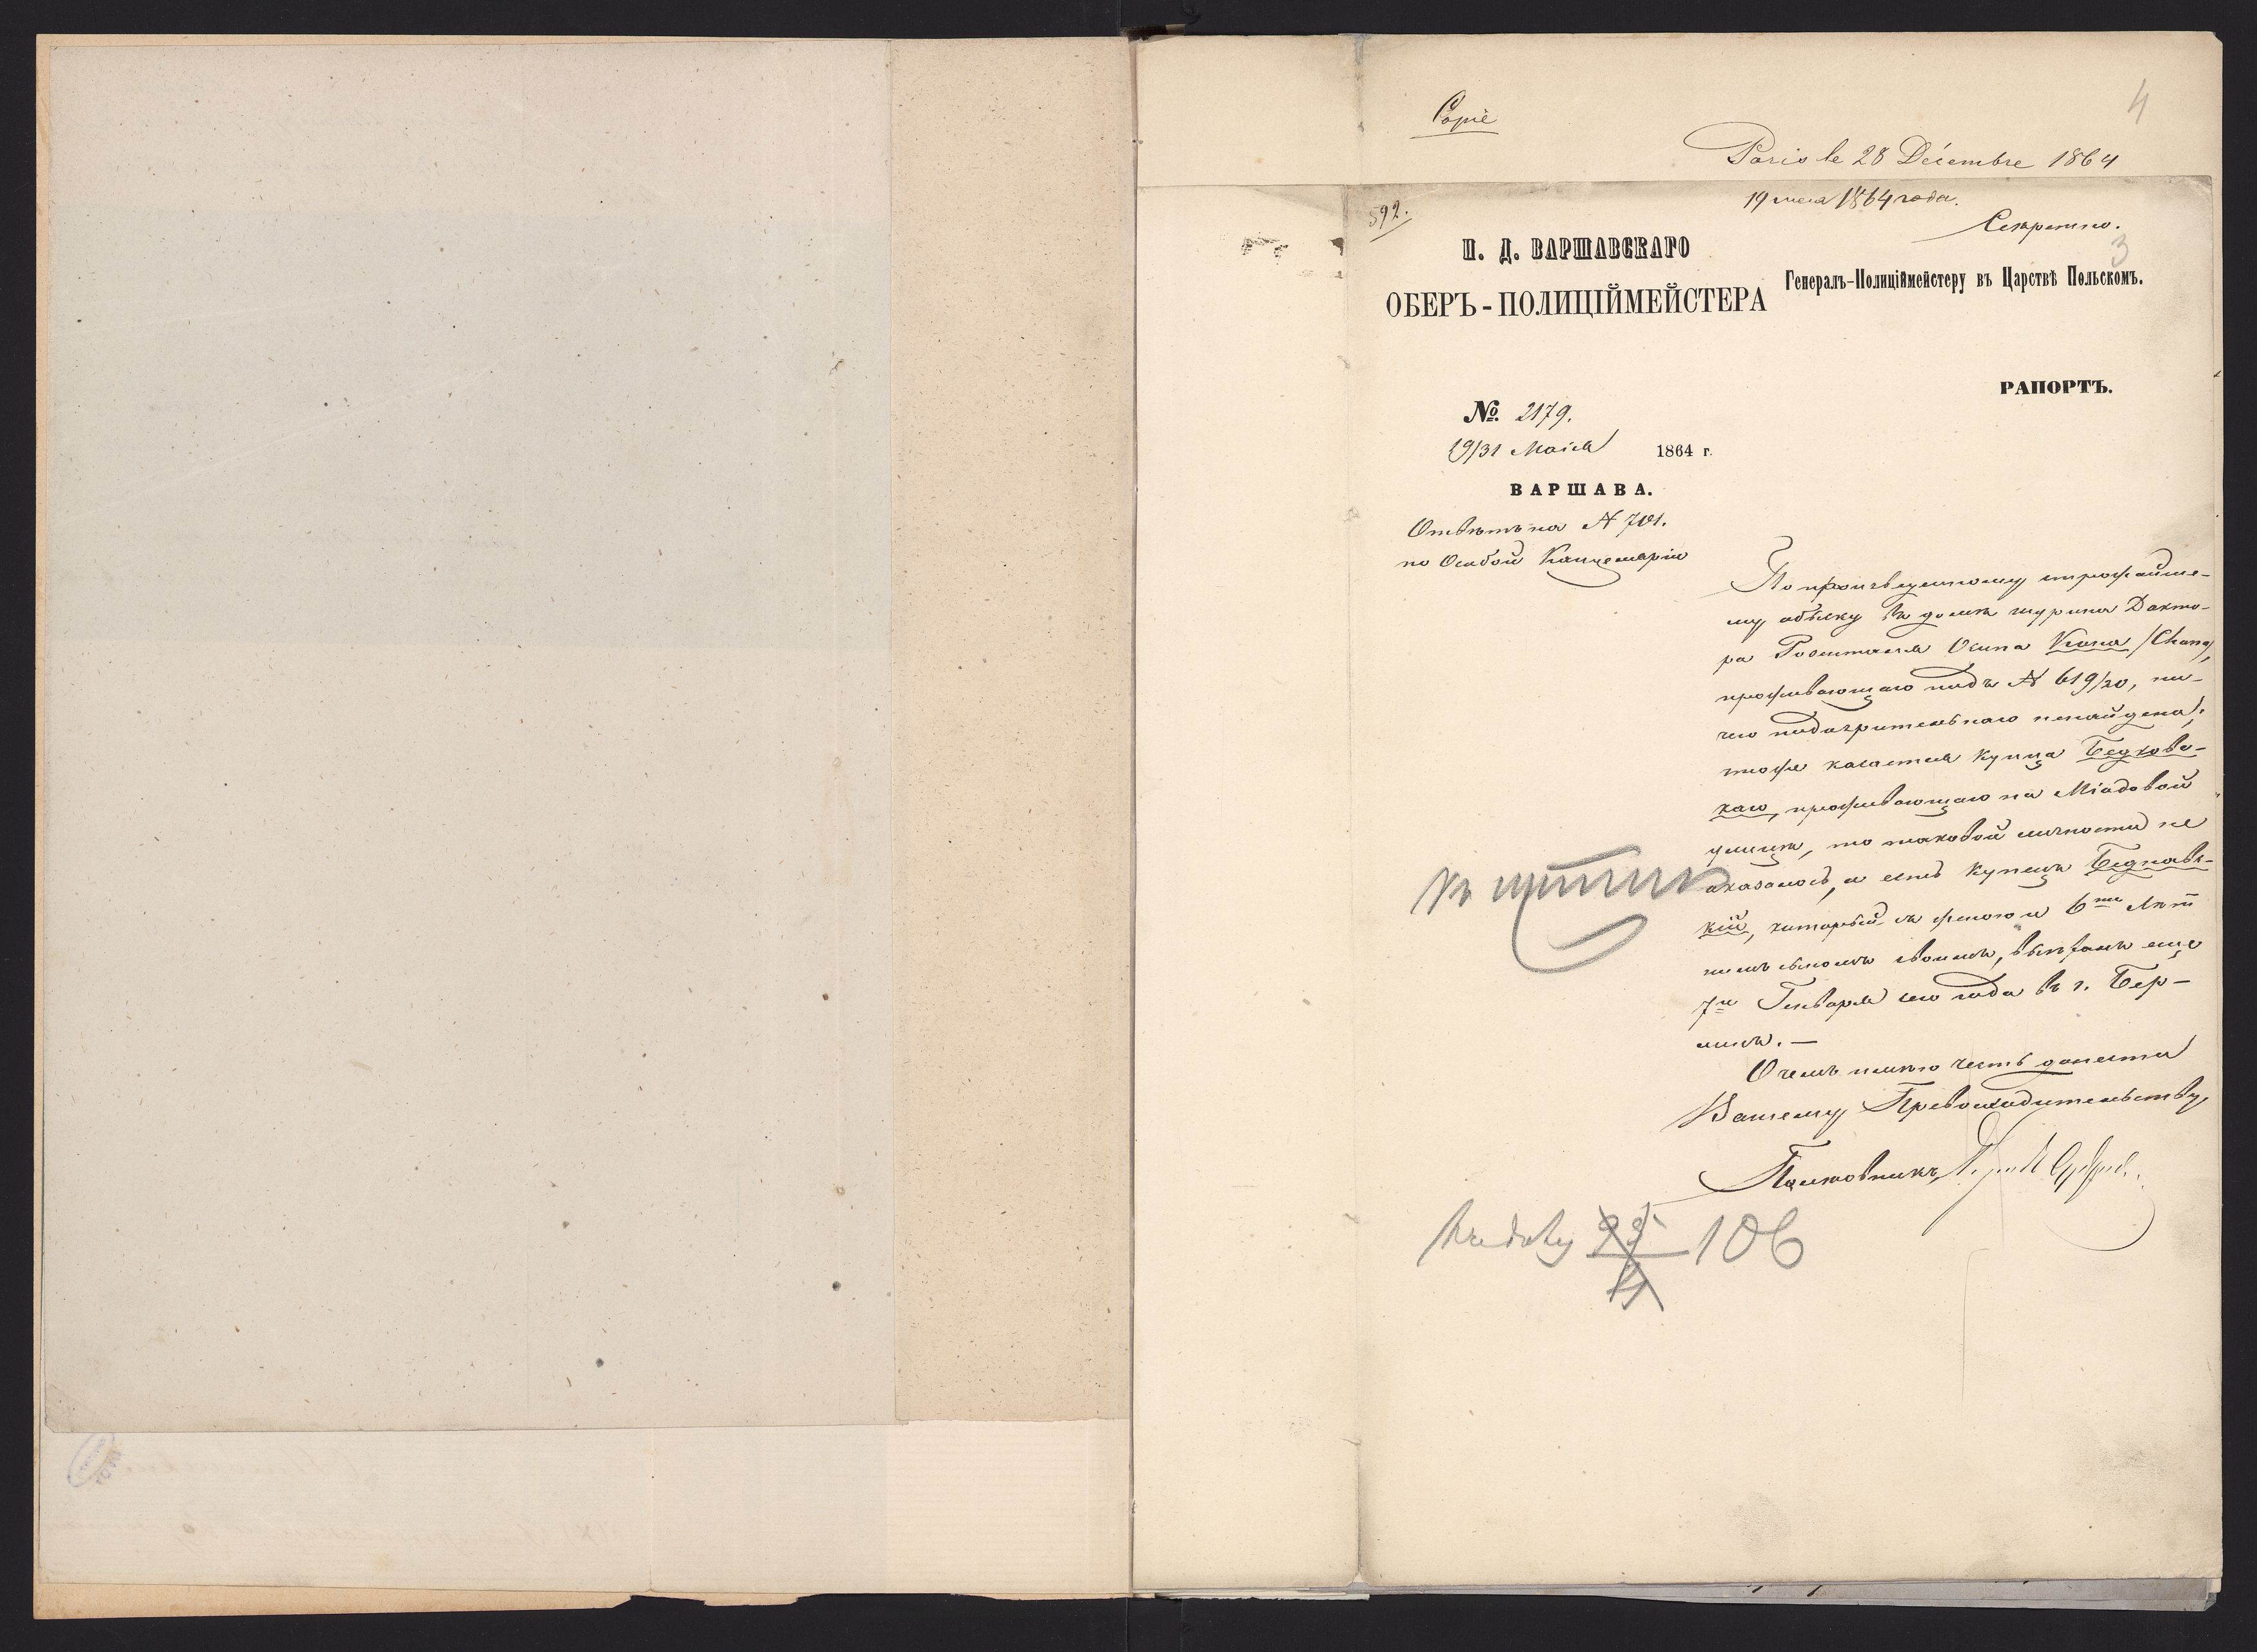 Copie
4
Paris le 28 Décembre 1864
19 мая 1864 года.
592.
Секретно.
3
И. Д. ВАРШАВСКАГО
ОБЕРЪ-ПОЛИЦІЙМЕЙСТЕРА
Генералъ-Полиціймейстеру въ Царствѣ Польскомъ.
РАПОРТЪ.
№ 2179.
19/31 Маія 1864 г.
ВАРШАВА.
Отвѣтъ на N 701.
по Особой Канцеляріи
По произведенному строжайше-
му обыску въ домѣ шурина Докто-
ра Розенталя Осипа Кона /Chona/,
проживающаго подъ N 619/20, ни-
чего подозрительнаго ненайдено;
чтоже касается Купца Бедковс-
каго, проживающаго на Міодовой
улицѣ, то таковой личности не
оказалось, а есть Купецъ Беднавс-
кій, который съ женою и 6ти лѣт
нимъ сыномъ своимъ, выѣхалъ еще
7го Генваря сего года въ г. Бер-
линъ.—
О чемъ имѣю честь донести
Вашему Превосходительству,
Полковникъ
106